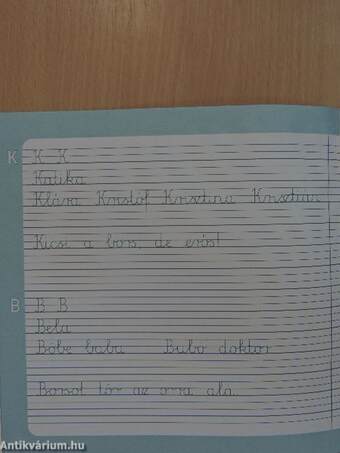 K K K
Katika
Klára Kristóf Krisztina Krisztián
Kicsi a bors, de erős!
B B B
Béla
Böbe baba Bubó doktor
Borsot tör az orra alá.
Antikvárium.hu